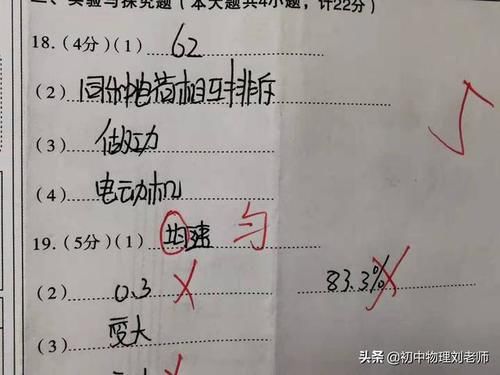 二、实验与探究题（本大题共4小题，计22分）
18.（4分）（1）62
（2）同种电荷相互排斥
（3）做功
（4）电动机
19.（5分）（1）均速 匀
（2）0.3 83.3%
（3）变大
头条 @初中物理刘老师